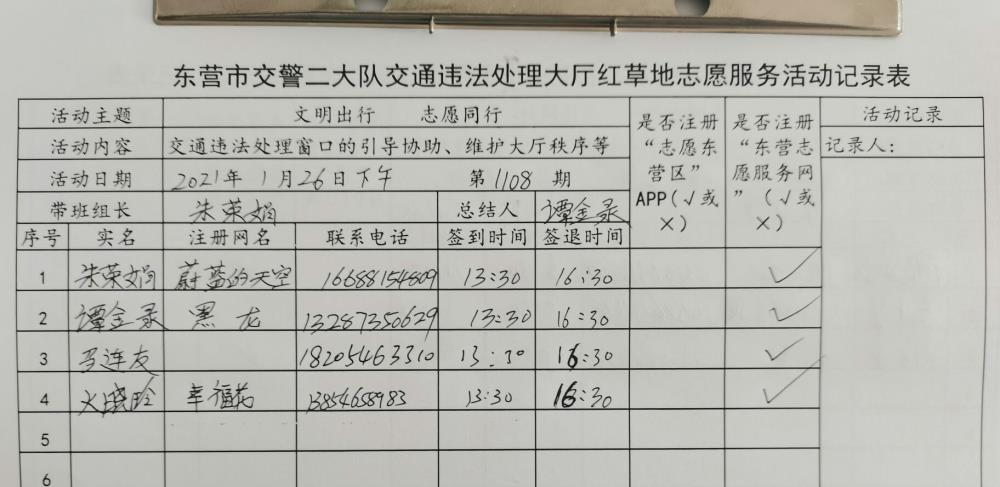 东营市交警二大队交通违法处理大厅红草地志愿服务活动记录表
活动主题 文明出行 志愿同行 是否注册“志愿东营区”APP(√或×) 是否注册“东营志愿服务网”(√或×) 活动记录
活动内容 交通违法处理窗口的引导协助、维护大厅秩序等 记录人:
活动日期 2021年 1月26日下午 第1108期
带班组长 朱荣娟 总结人 谭金录
序号 实名 注册网名 联系电话 签到时间 签退时间
1 朱荣娟 蔚蓝的天空 16688154809 13:30 16:30 √
2 谭金录 黑龙 13287350629 13:30 16:30 √
3 马连友 18205463310 13:30 16:30 √
4 晓玲 幸福花 13854658983 13:30 16:30 √
5
6